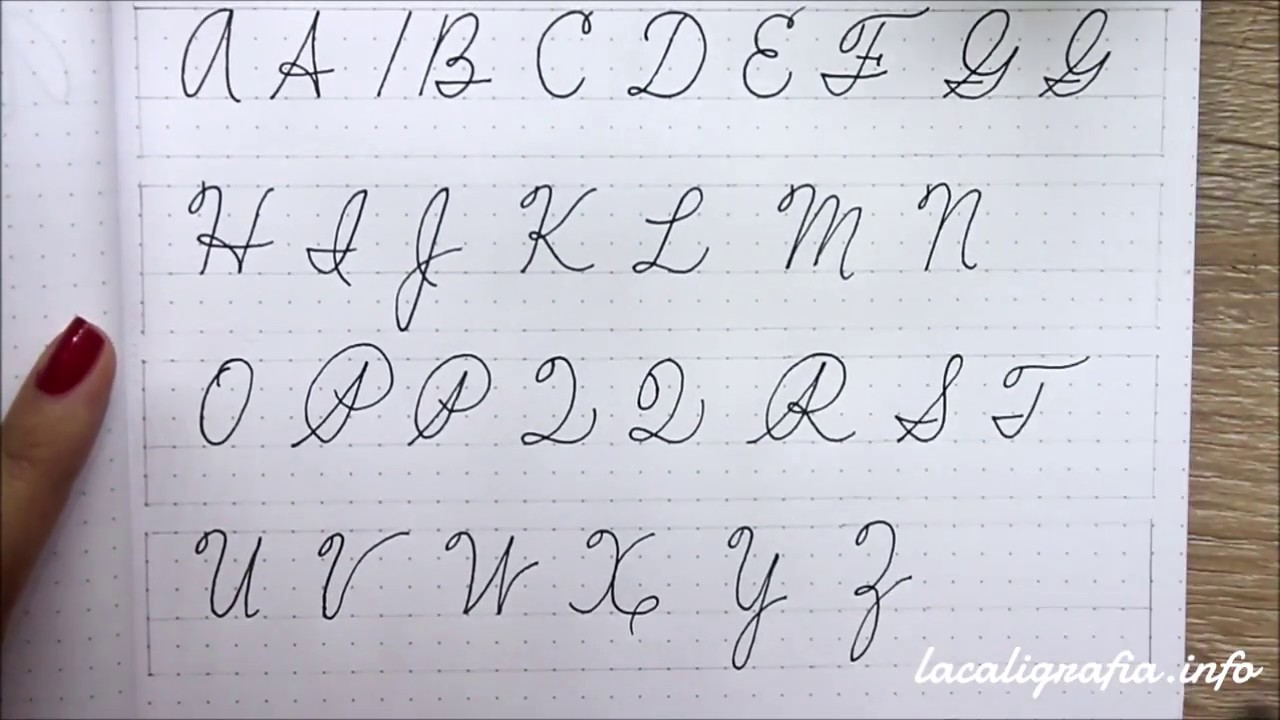 A A / B C D E F G G
H I J K L M N
O P P Q Q R S T
U V W X Y Z
lacaligrafia.info